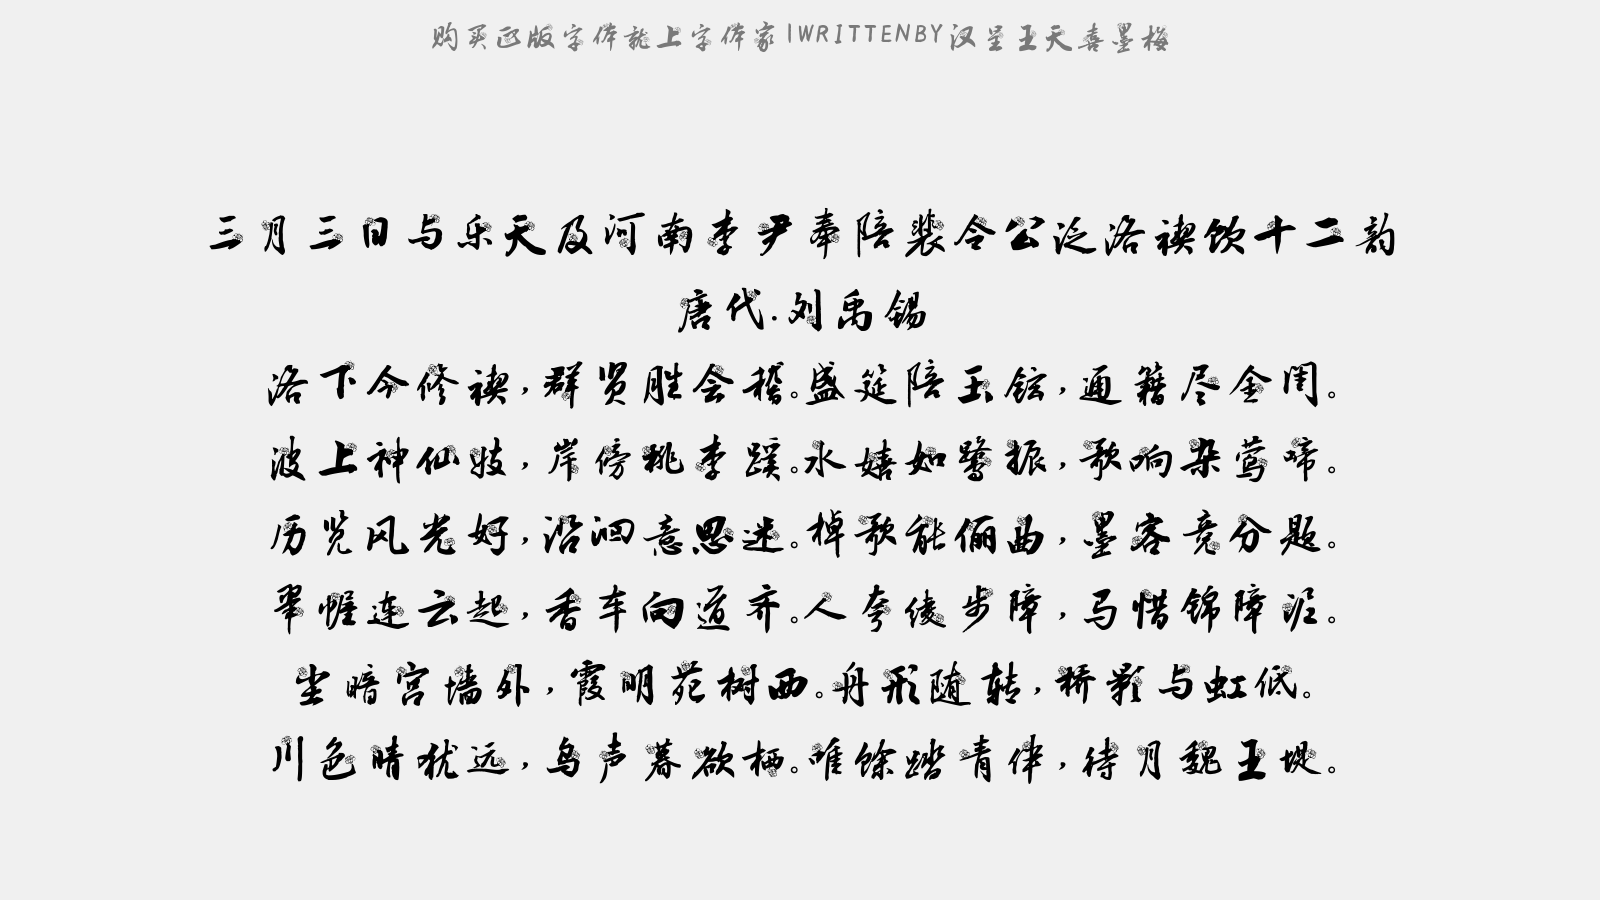 购买正版字体就上字体家|WRITTENBY汉呈王天喜墨梅
三月三日与乐天及河南李尹奉陪裴令公泛洛禊饮十二韵
唐代.刘禹锡
洛下今修禊,群贤胜会稽。盛筵陪玉铉,通籍尽金闺。
波上神仙妓,岸傍桃李蹊。水嬉如鹭振,歌响杂莺啼。
历览风光好,沿洄意思迷。棹歌能俪曲,墨客竞分题。
翠幄连云起,香车向道齐。人夸绫步障,马惜锦障泥。
尘暗宫墙外,霞明苑树西。舟形随转,桥影与虹低。
川色晴犹远,鸟声暮欲栖。唯馀踏青伴,待月魏王堤。